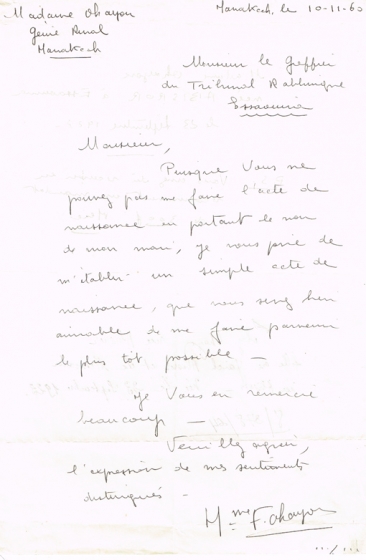 Madame Ohayon
Génie Rural
Marrakech
Marrakech, le 10-11-60
Monsieur le Greffier
du Tribunal Rabbinique
Essaouira
Monsieur,
Puisque vous ne
pouvez pas me faire l'acte de
naissance en portant le nom
de mon mari, je vous prie de
m'établir un simple acte de
naissance, que vous serez bien
aimable de me faire parvenir
le plus tôt possible —
Je vous en remercie
beaucoup —
Veuillez agréer,
l'expression de mes sentiments
distingués -
Mme F. Ohayon
.../...